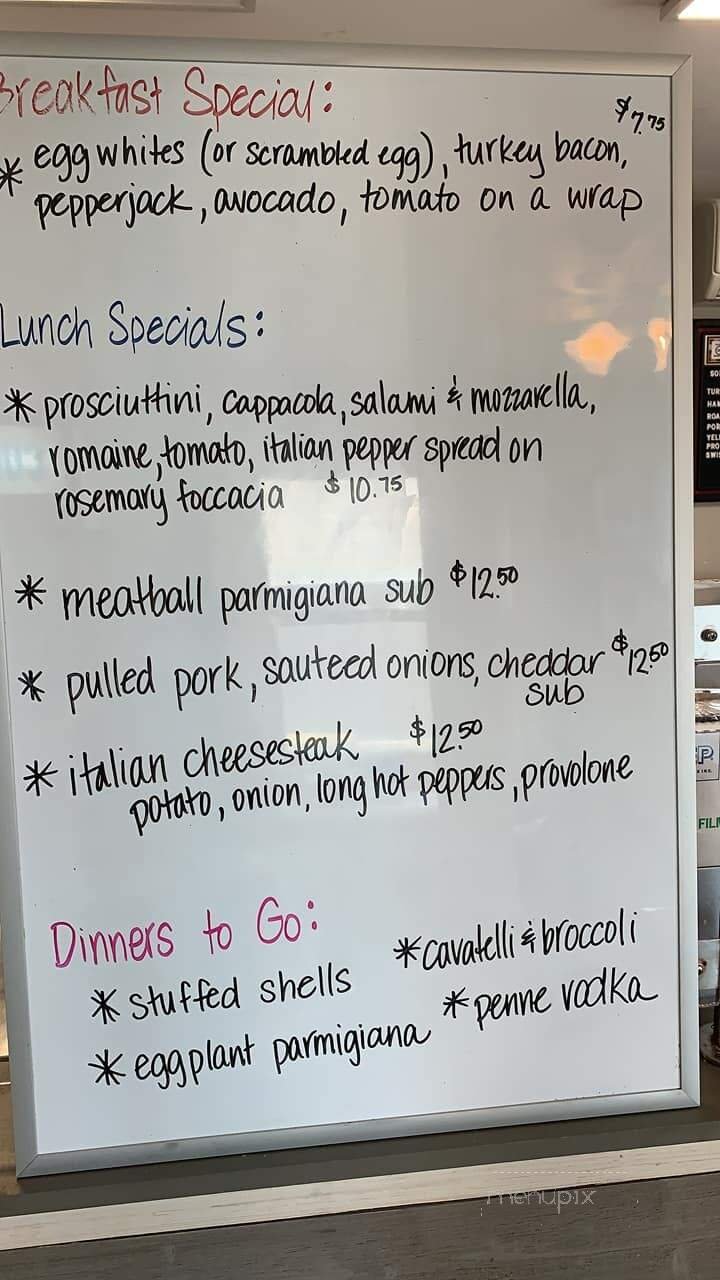 Breakfast Special:
$7.75
* egg whites (or scrambled egg), turkey bacon,
pepperjack, avocado, tomato on a wrap
Lunch Specials:
* prosciuttini, cappacola, salami & mozzarella,
romaine, tomato, italian pepper spread on
rosemary foccacia $10.75
* meatball parmigiana sub $12.50
* pulled pork, sauteed onions, cheddar $12.50
sub
* italian cheesesteak $12.50
potato, onion, long hot peppers, provolone
Dinners to Go:
* stuffed shells
* eggplant parmigiana
* cavatelli & broccoli
* penne vodka
menupix